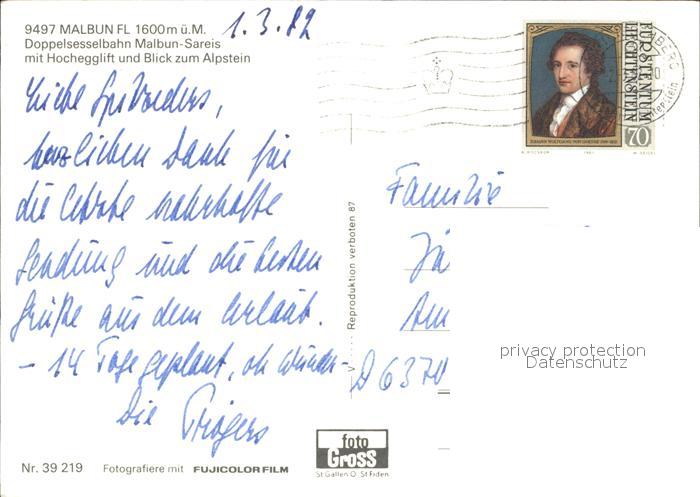 9497 MALBUN FL 1600 m ü.M.
Doppelsesselbahn Malbun-Sareis
mit Hochegglift und Blick zum Alpstein
1.3.82
FÜRSTENTUM
LIECHTENSTEIN
70
JOHANN WOLFGANG VON GOETHE
Liebe
herzlichen Dank für
die
Sendung und die besten
Grüße aus dem Urlaub.
- 14 Tage geplant, oh Wunder -
Die
Familie
Am
D 6370
Reproduktion verboten 87
privacy protection
Datenschutz
foto
Gross
St Gallen O. St Fiden
Nr. 39 219
Fotografiere mit FUJICOLOR FILM